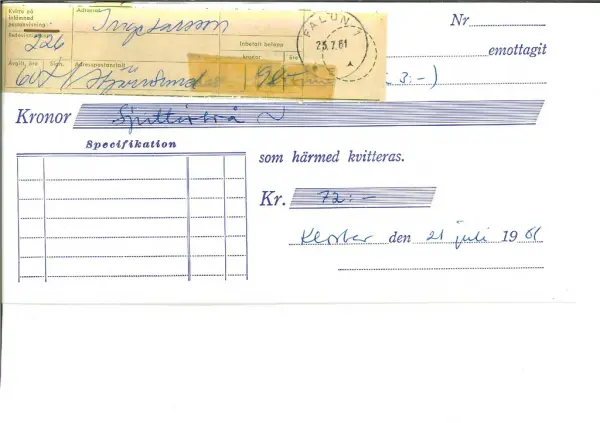 Kvitto på
inlämnad
postanvisning:
Adressat
Nr
226
FALUN 1
25.7.61
emottagit
Inbetalt belopp
Avgift, öre Sign. Adresspostanstalt kronor öre
60
90:-
3:-)
Kronor Sjuttiotvå
Specifikation
som härmed kvitteras.
Kr. 72:-
den 21 juli 1961